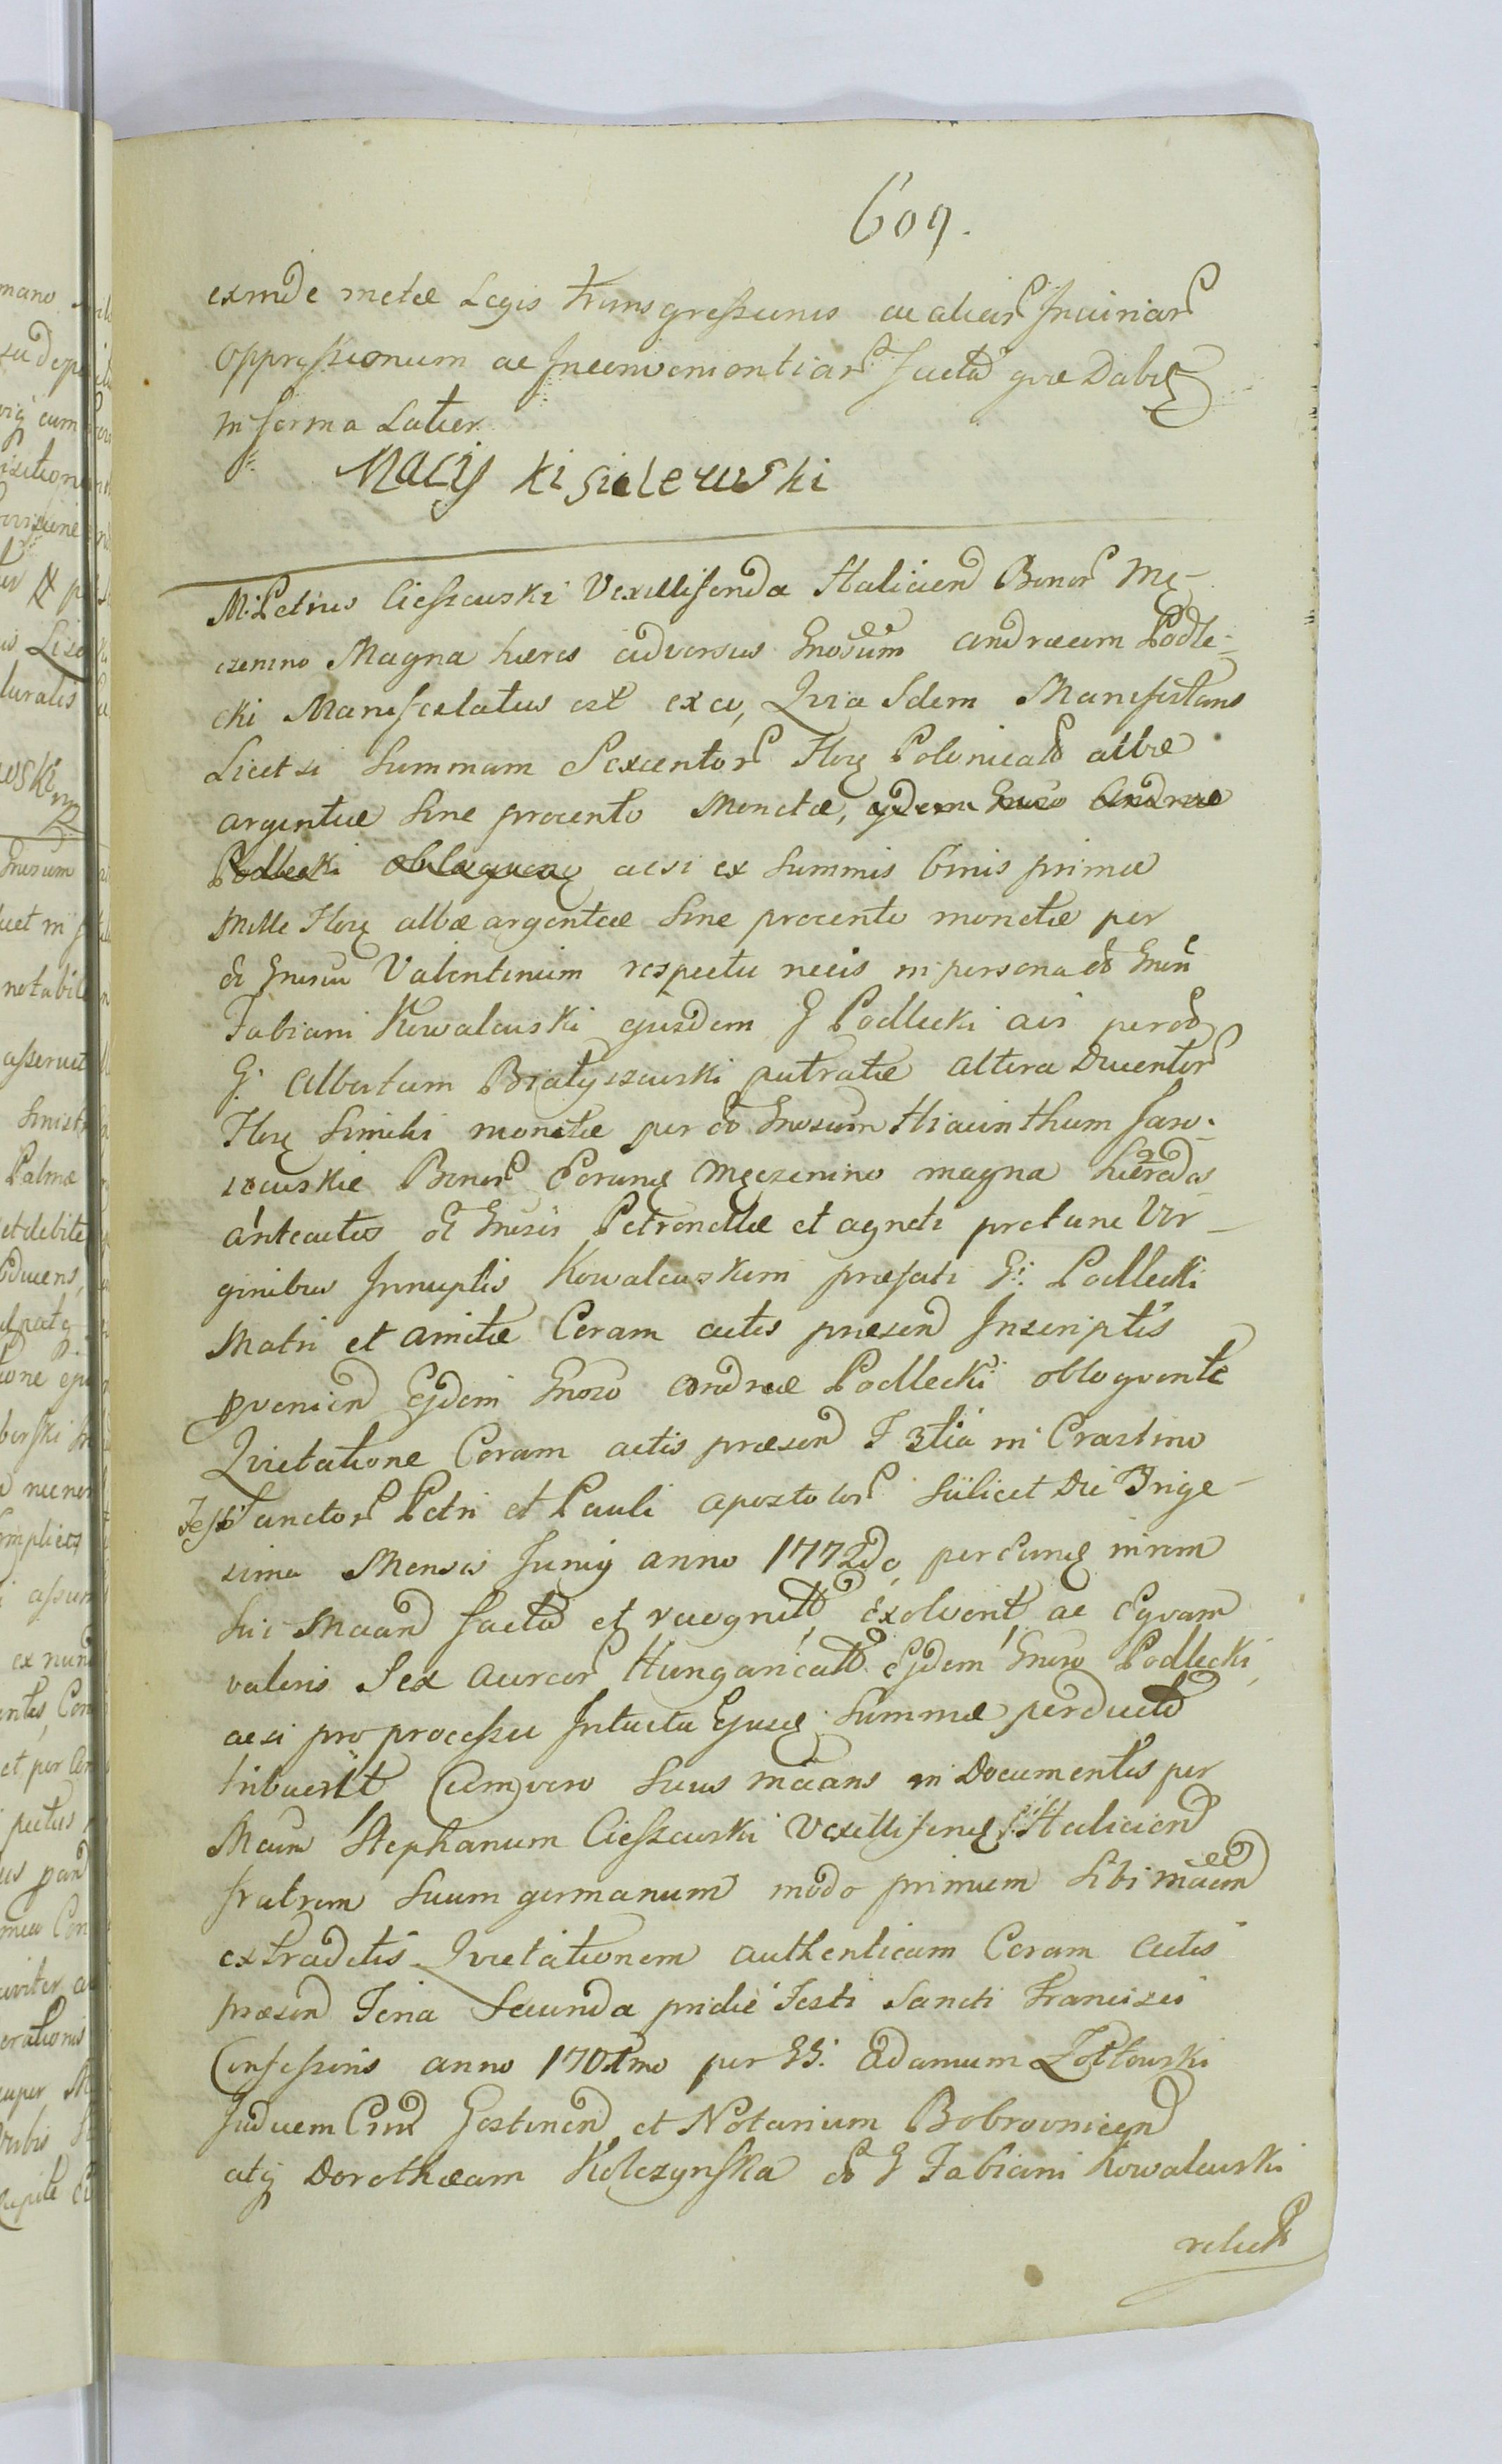 609.
exinde metæ Legis transgressionis ac aliar Iniuriar
Oppressionum ac Inconvenientiar facta quæ Dabit
in forma Latior.
Macij Kisielewski
M. Petrus Cieszewski Vexillifer Halicien Bonor Mę-
czenino Magna hæres adversus Gnosum Andræam Podle-
cki Manifestatus est ex eo, Quia Idem Manifestans
Licet si Summam Sexcentor Flor Polonical albæ
argenteæ sine procento Monetæ,
acsi ex Summis binis prima
Mille Flor albæ argenteæ sine procento monetæ per
olim Gnosum Valentinum respectu necis in persona ol Gnosi
Fabiani Kowalewski ejusdem G Podlecki avi per ol
G. Albertum Białyszewski patratæ altera Ducentor
Flor simili monetæ per ol Gnosum Hiacinthum Jaro-
szewskie Bonor Eorund Męczenino magna hæredes
anteactos ol Gnosis Petronellæ et Agneti pro tunc Vir-
ginibus Innuptis Kowalewskim præfati G: Podlecki
Matri et amitæ Coram actis præsen Inscriptis
pvenien Ejdem Gnoso Andreæ Podlecki obloquente
Quietatione Coram actis præsen F 3tia in Crastino
Festi Sanctor Petri et Pauli Apostolor scilicet Die Trige-
sima Mensis Junij anno 1772do per Eund in rem
sui Maand facta et recognita, Exolverit, ac Eqvam
valoris Sex Aureor Hungarical Ejdem Gnoso Podlecki,
acsi pro processu Intuitu Ejusd Summæ perducto
tribuerit Cum vero Suus Mæans in Documentis per
Mcum Stephanum Cieszewski Vexillifer Halicien
fratrem Suum germanum modo primum Sibi
extraditis Quietationem authenticam Coram Actis
præsen Feria Secunda pridie Festi Sancti Francisci
Confessoris anno 1701mo per GG. Adamum Zołtowski
Judicem Gostinen et Notarium Bobrovnicen
atq Dorotheam Kolczynska ol G Fabiani Kowalewski
relict